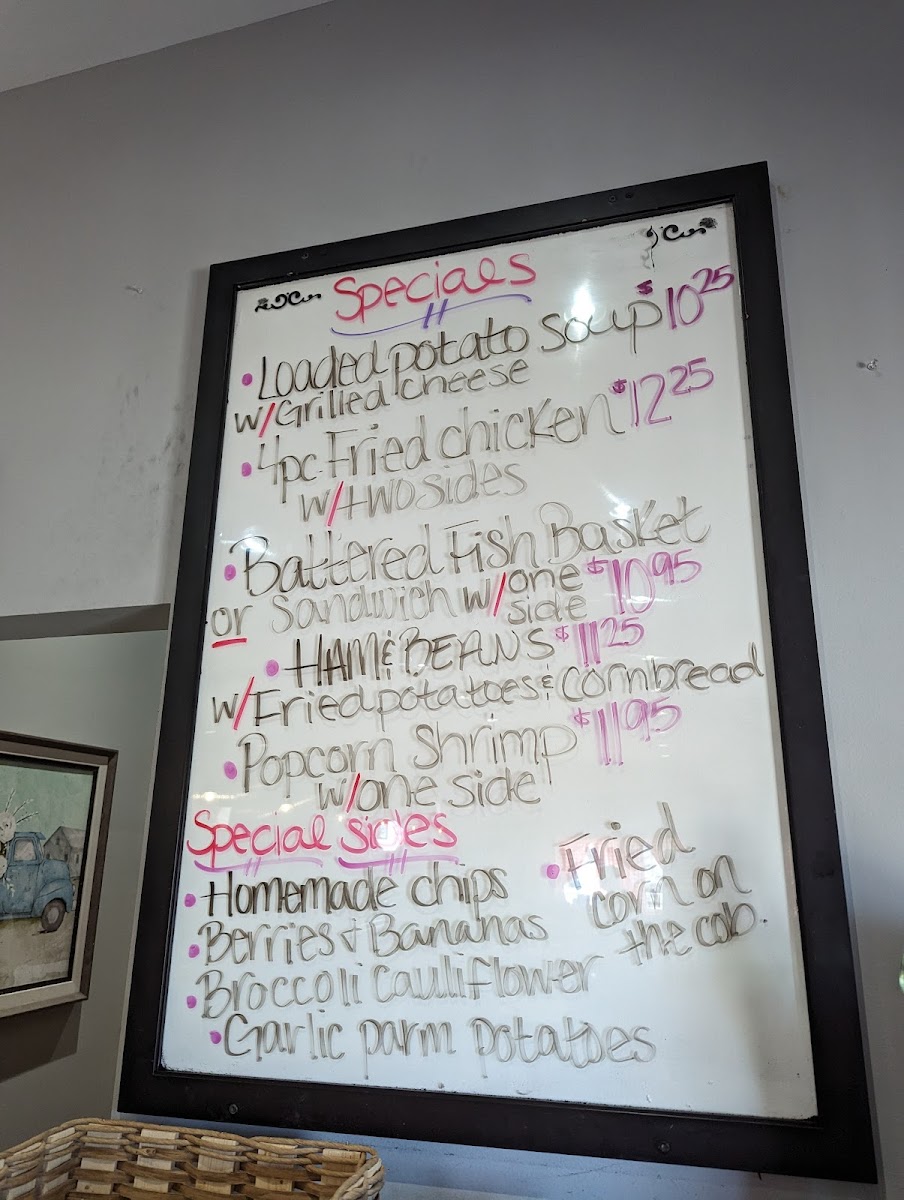 Specials
• Loaded potato Soup $10.25
w/Grilled Cheese
• 4pc. Fried chicken $12.25
w/two sides
• Battered Fish Basket
or Sandwich w/one side $10.95
• HAM & BEANS $11.25
w/Fried potatoes & Cornbread
• Popcorn Shrimp $11.95
w/one side
Special sides
• Homemade chips
• Berries & Bananas
• Broccoli Cauliflower
• Garlic parm potatoes
• Fried
corn on
the cob.